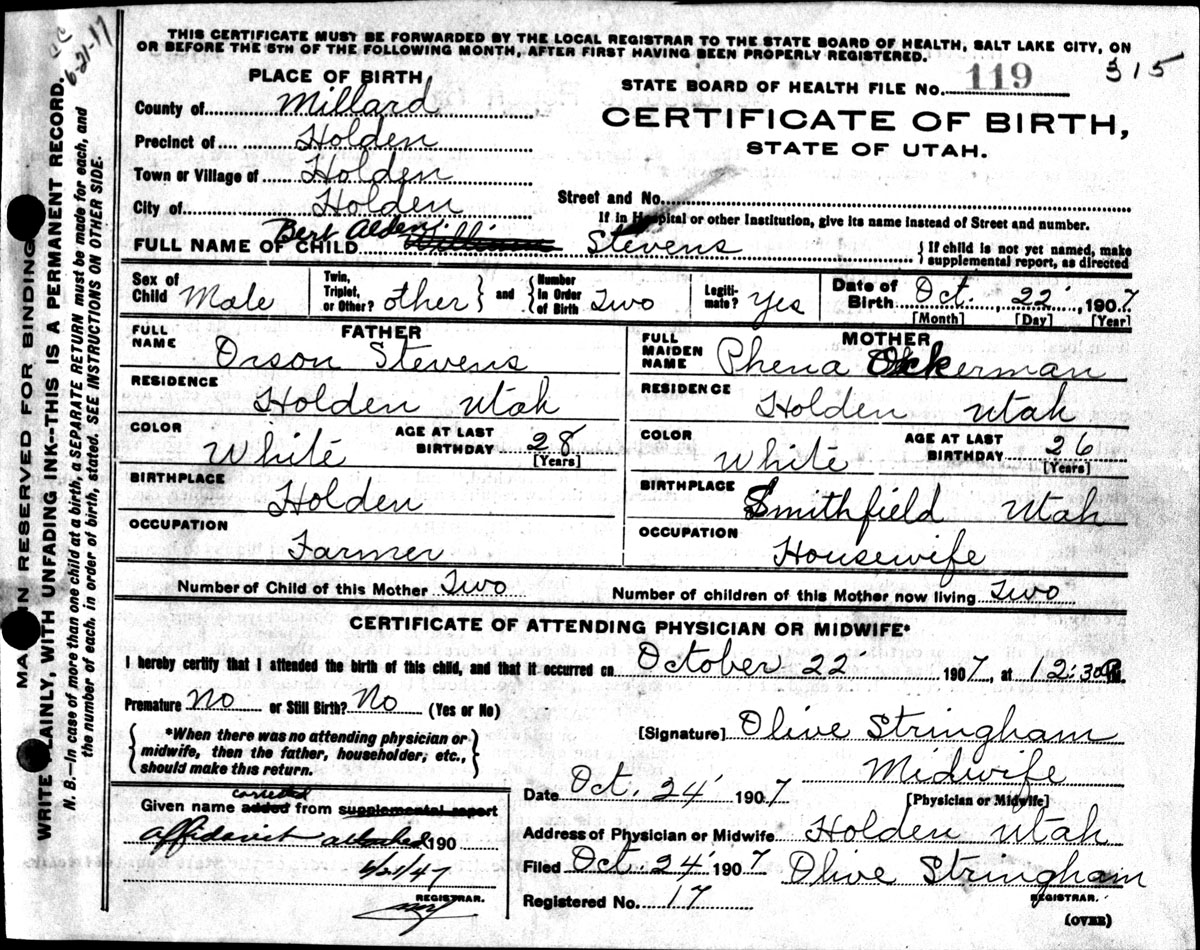 THIS CERTIFICATE MUST BE FORWARDED BY THE LOCAL REGISTRAR TO THE STATE BOARD OF HEALTH, SALT LAKE CITY, ON
OR BEFORE THE 5TH OF THE FOLLOWING MONTH, AFTER FIRST HAVING BEEN PROPERLY REGISTERED.
315
PLACE OF BIRTH
STATE BOARD OF HEALTH FILE NO. 119
County of Millard
CERTIFICATE OF BIRTH,
STATE OF UTAH.
Precinct of Holden
Town or Village of Holden
City of Holden
Street and No.
If in Hospital or other Institution, give its name instead of Street and number.
FULL NAME OF CHILD Bert Alden William Stevens
{ If child is not yet named, make
supplemental report, as directed
Sex of Child Male
Twin, Triplet, or Other? other
and
Number in Order of Birth Two
Legiti-mate? Yes
Date of Birth Oct. 22 1907
[Month] [Day] [Year]
FATHER
FULL NAME Orson Stevens
RESIDENCE
Holden Utah
COLOR White
AGE AT LAST BIRTHDAY 28
[Years]
BIRTHPLACE
Holden
OCCUPATION
Farmer
MOTHER
FULL MAIDEN NAME Phena Ockerman
RESIDENCE
Holden Utah
COLOR White
AGE AT LAST BIRTHDAY 26
[Years]
BIRTHPLACE
Smithfield Utah
OCCUPATION
Housewife
Number of Child of this Mother Two
Number of children of this Mother now living Two
CERTIFICATE OF ATTENDING PHYSICIAN OR MIDWIFE*
I hereby certify that I attended the birth of this child, and that it occurred on October 22 1907, at 12:30 P.M.
Premature No or Still Birth? No (Yes or No)
{ *When there was no attending physician or
midwife, then the father, householder, etc.,
should make this return. }
[Signature] Olive Stringham
Midwife
[Physician or Midwife]
Date Oct. 24 1907
Address of Physician or Midwife Holden Utah
Filed Oct. 24 1907 Olive Stringham
REGISTRAR.
Registered No. 17
(OVER)
corrected
Given name added from supplemental report
Affidavit attached 190
6/21/47
REGISTRAR.
MARGIN RESERVED FOR BINDING
WRITE PLAINLY, WITH UNFADING INK--THIS IS A PERMANENT RECORD.
N. B.--In case of more than one child at a birth, a SEPARATE RETURN must be made for each, and
the number of each, in order of birth, stated. SEE INSTRUCTIONS ON OTHER SIDE.